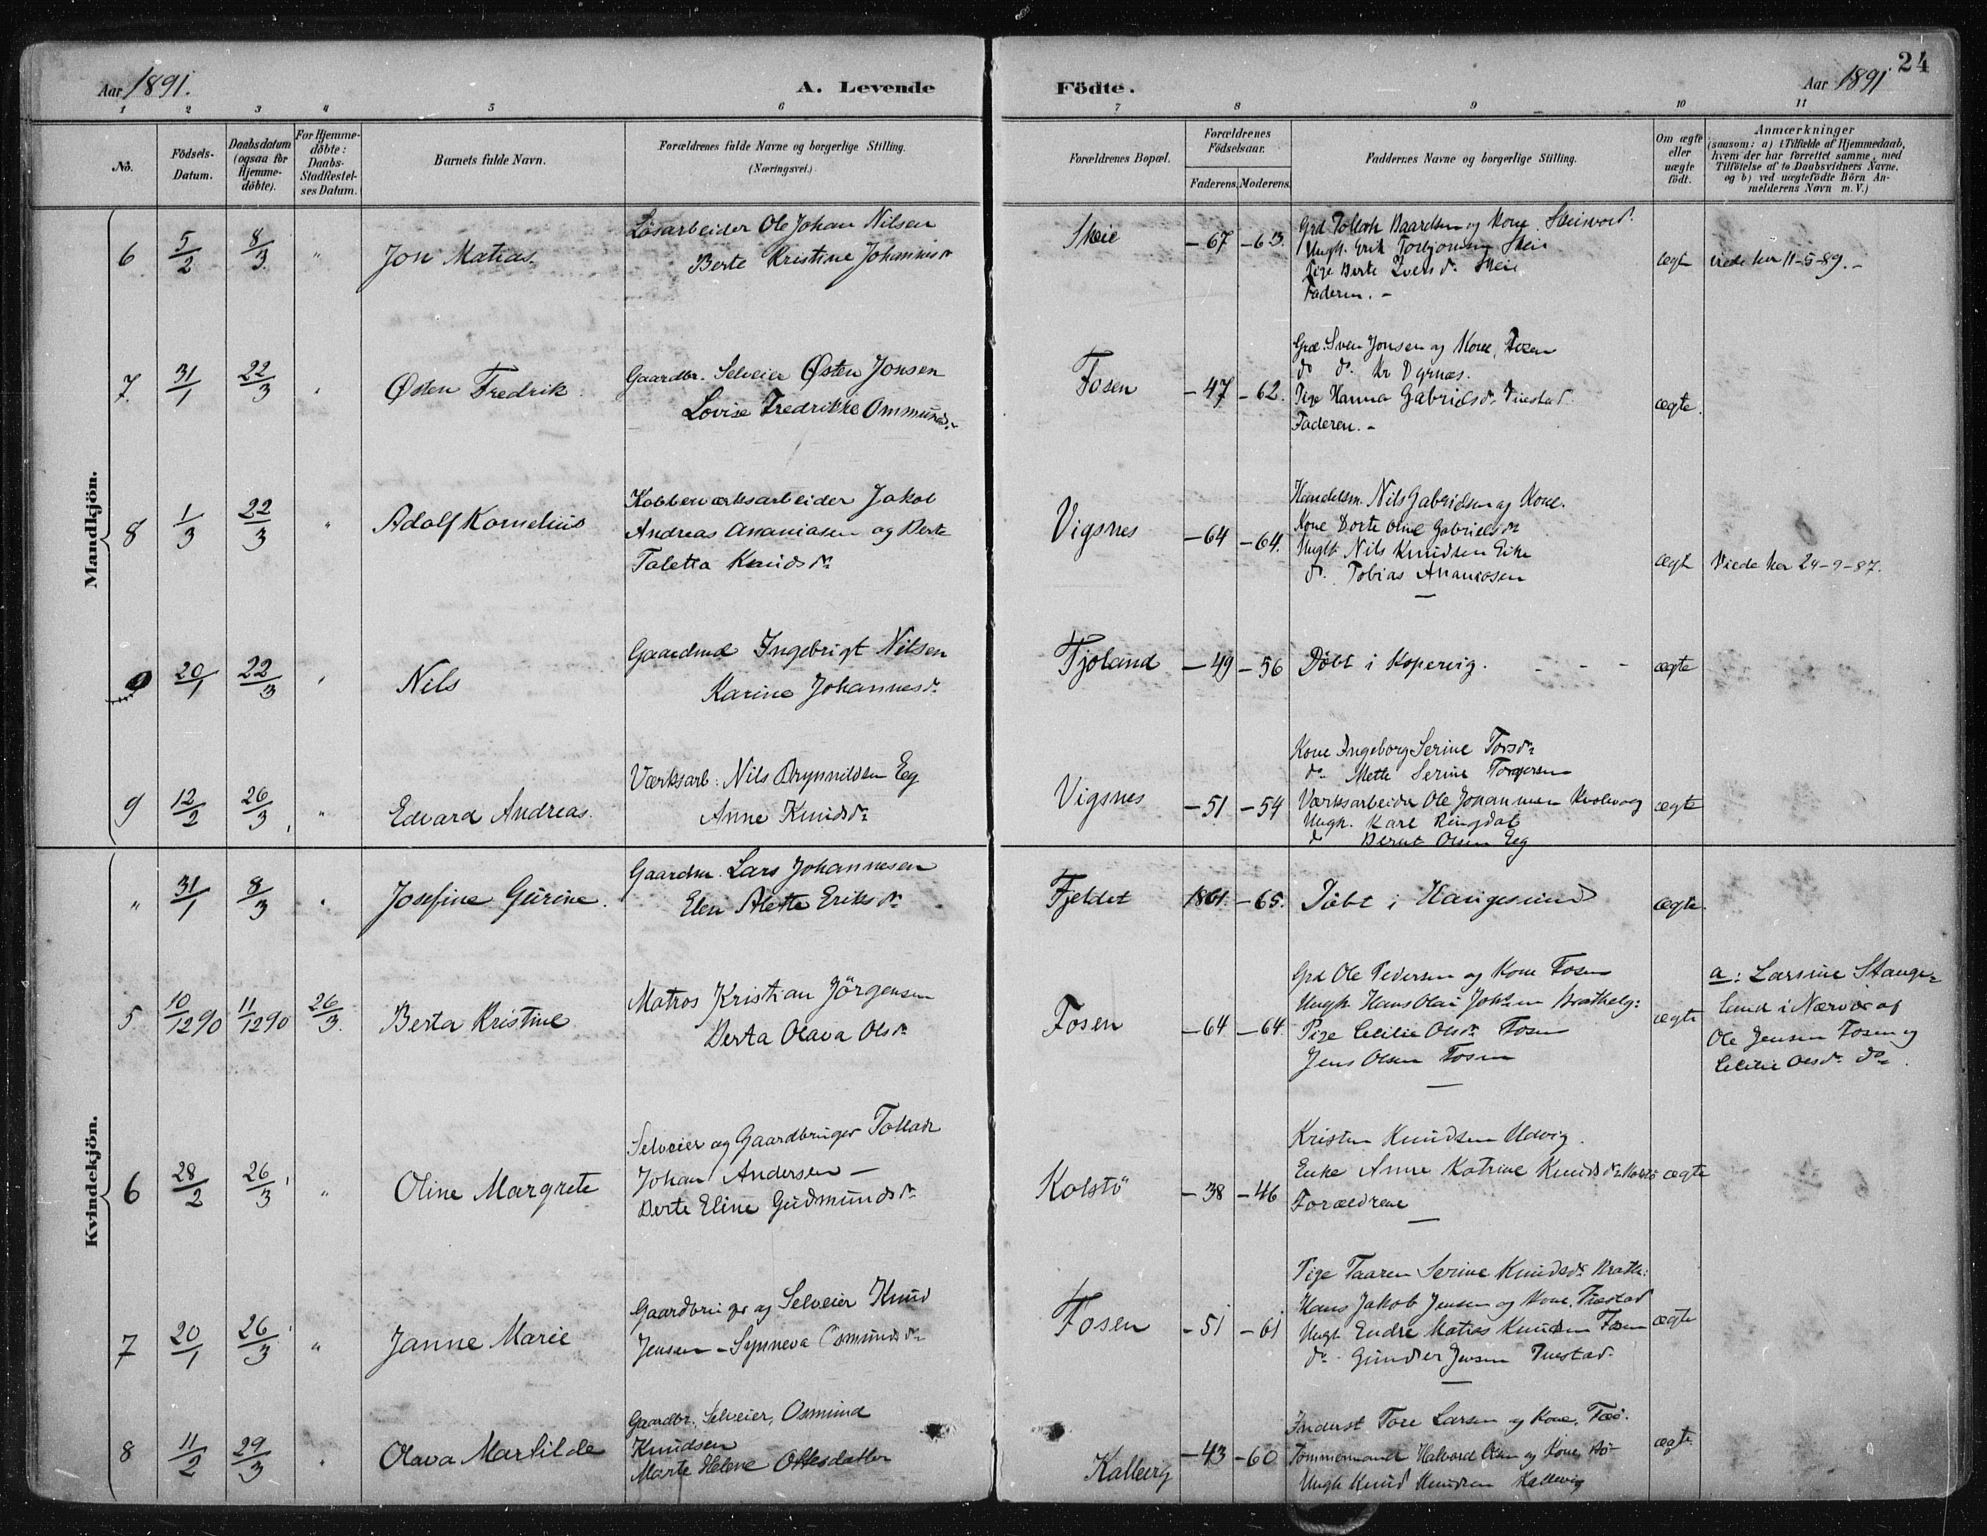 Aar 1891.
A. Levende
Födte.
Aar 1891
24
1 2 3 4 5 6 7 8 9 10 11
No.
Födsels-
Datum.
Daabsdatum
(ogsaa for
Hjemme-
döbte).
For Hjemme-
döbte:
Daabs-
Stadfæstel-
ses Datum.
Barnets fulde Navn.
Forældrenes fulde Navne og borgerlige Stilling.
(Næringsvei.)
Forældrenes Bopæl.
Forældrenes
Födselsaar.
Faderens. Moderens.
Faddernes Navne og borgerlige Stilling.
Om ægte
eller
uægte
født.
Anmærkninger
(saasom: a) i Tilfælde af Hjemmedaab,
hvem der har forrettet samme, med
Tilföielse af to Daabsvidners Navne,
og b) ved uægtefödte Börn An-
melderens Navn m. V.)
Mandkjön.
6 5/2 8/3 " Jon Matias.
Løsarbeider Ole Johan Nilsen
Berte Kristine Johannisdr
Skeie -67 -63.
Grd Tollak Baardsen og Kone
Ungk. Erik Torbjørnsen Skeie
Pige Berte Skeie
Faderen. -
ægte viede her 11-5-89. -
7. 31/1 22/3 " Østen Fredrik
Gaardbr. Selveier Østen Jonsen
Lovise Fredrikke Ommundsdr
Fosen -47 -62.
Grd. Sven Jonsen og Kone, Fosen
do do
Pige Hanna Gabrielsdr
Faderen. -
ægte.
8 1/3 22/3 " Adolf Kornelius
Kobberværksarbeider Jakob
Andreas Ananiasen og Berte
Taletta Knudsdr
Vigsnes -64 -64.
Handelsm. Nils Gabrielsen og Kone.
Kone Dorte Oline Gabrielsdr
Ungk Nils Knudsen Eike
do. Tobias Ananiasen
ægte Viede her 24-9-87.
9 20/1 22/3 " Nils
Gaardmd Ingebrigt Nilsen
Karine Johannesdr
Fjoland -49 -56 Döbt i Kopervig. - - - ægte
9 12/2 26/3 " Edvard Andreas.
Værksarb. Nils Brynnildsen Eeg
Anne Knudsdr
Vigsnes -51 -54
Kone Ingeborg Serine Torsdr
do Mette Serine Torgersen
Værksarbeider Ole Johannesen
Ungk. Karl Ringdal
do Bernt Olsen Eeg
ægte
Kvindekjön.
" 31/1 8/3 " Josefine Gurine.
Gaardm. Lars Johannesen
Elen Alette Eriksdr
Fjeldet 1861. -65. Döbt i Haugesund ægte.
5 10/12 90 11/12 90 26/3. Berta Kristine
Matros Kristian Jörgensen
Berta Olava Olsdr
Fosen -64 -64.
Grd Ole Pedersen og Kone Fosen
Ungk. Hans Olai
Pige Cecilie Olsdr Fosen
Jens Olsen Fosen
ægte
a: Larsine Stange-
land i Nærvær af
Ole Jensen Fosen og
Cecilie Olsdr do.
6 28/2 26/3 " Oline Margrete
Selveier og Gaardbruger Tollak
Johan Andersen -
Berte Eline Gudmundsdr
Kolstö -38 -46
Kristen Knudsen Udvig.
Enke Anne Katrine Knudsdr Kolstö
Forældrene
ægte
7 20/1 26/3 " Janne Marie
Gaardbruger og Selveier Knud
Jensen - Synneva Osmundsdr
Fosen -51 -61
Pige Taaren Serine Knudsdr
Hans Jakob Jensen og Kone,
Ungk Endre Matias Knudsen Fosen
do. Gunder Jensen
ægte
8 11/2 29/3 " Olava Martilde
Gaardbr. Selveier, Osmund
Knudsen
Marte Helene Ottesdatter
Kallevig -43 -60
Inderst Tore Larsen og Kone,
Tømmermand Halvard Olsen og Kone,
Ungk Knud Knudsen Kallevig
ægte